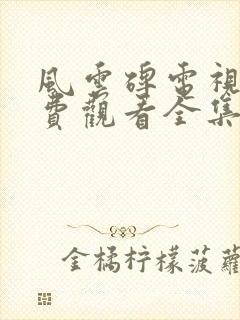 風雲碑電視
費觀看全集
金橘柠檬菠蘿